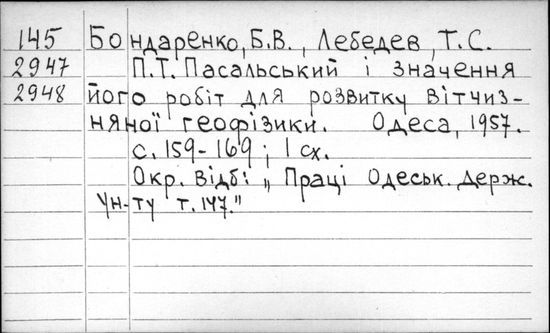 145 Бондаренко, Б.В., Лебедев, Т.С.
2947 П.Т. Пасальський і значення
2948 його робіт для розвитку вітчиз-
няної геофізики. Одеса, 1957.
с. 159-169; 1 сх.
Окр. відб: „Праці Одеськ. держ.
ун-ту т. 147."